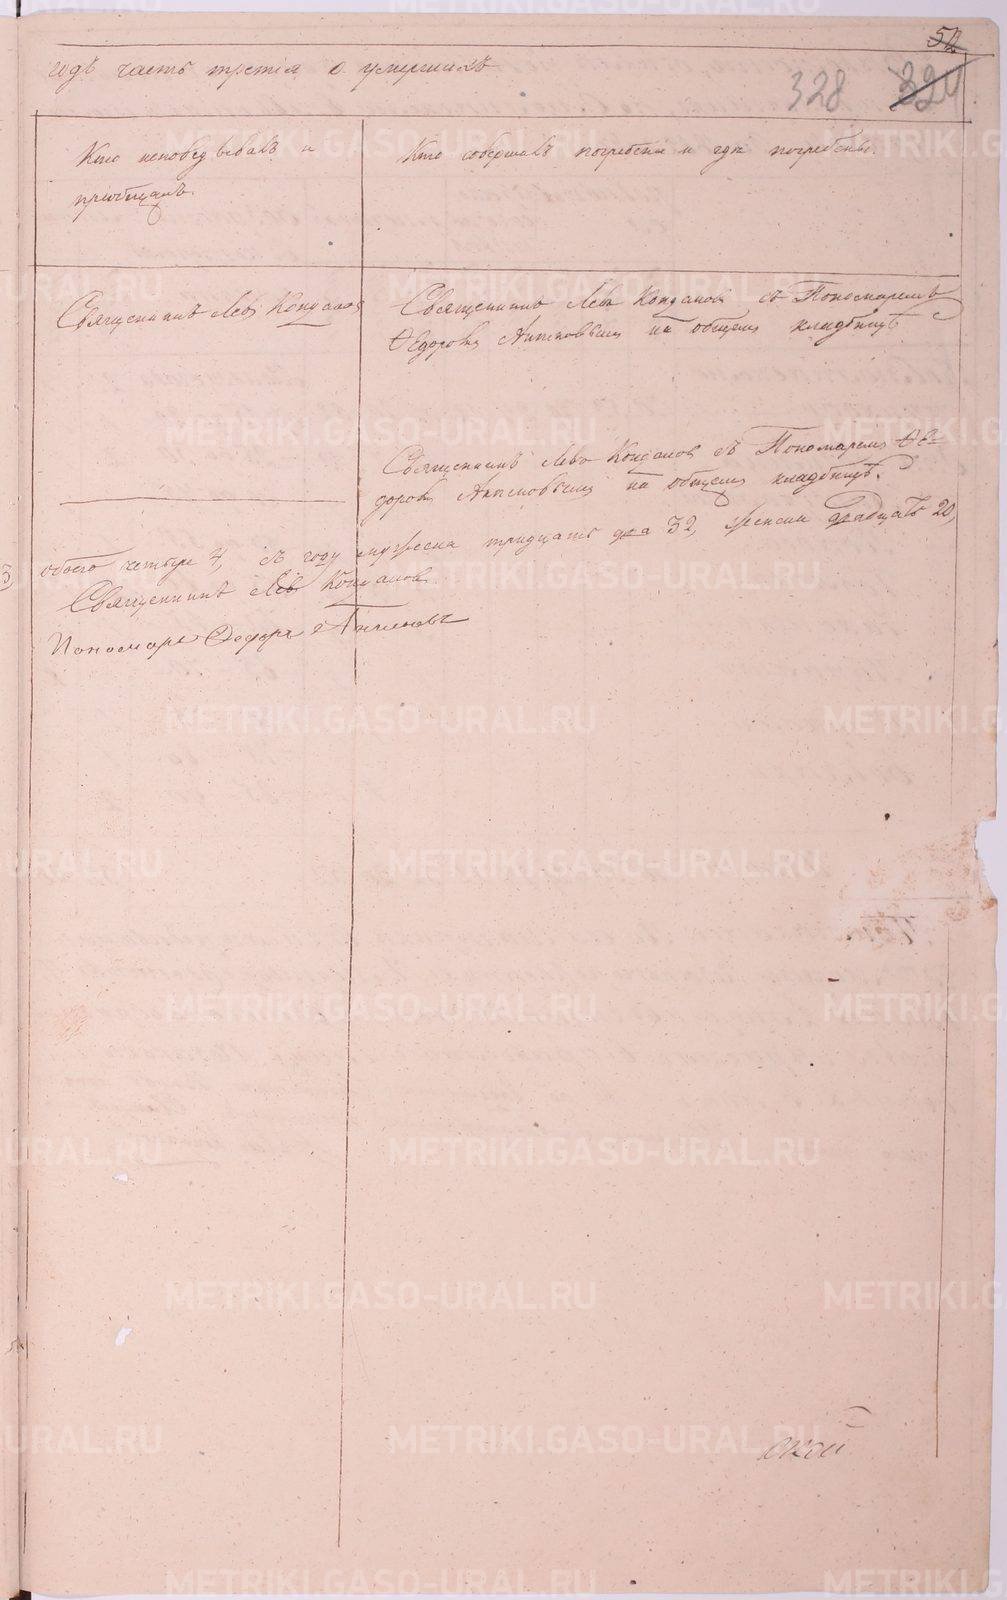 52
годъ часть третія о умершихъ
328 320
Кто исповѣдывалъ и
пріобщалъ.
Кто совершалъ погребеніе и гдѣ погребены.
Священникъ Левъ Кондаковъ
Священникъ Левъ Кондаковъ съ Пономаремъ
Ѳедоромъ на общемъ кладбищѣ
Священникъ Левъ Кондаковъ съ Пономаремъ Ѳе-
доромъ на общемъ кладбищѣ.
обоего четыре 4, съ году мужеска тридцать два 32, женска двадцать 20,
Священникъ Левъ Кондаковъ.
Пономарь Ѳедоръ
ской
METRIKI.GASO-URAL.RU